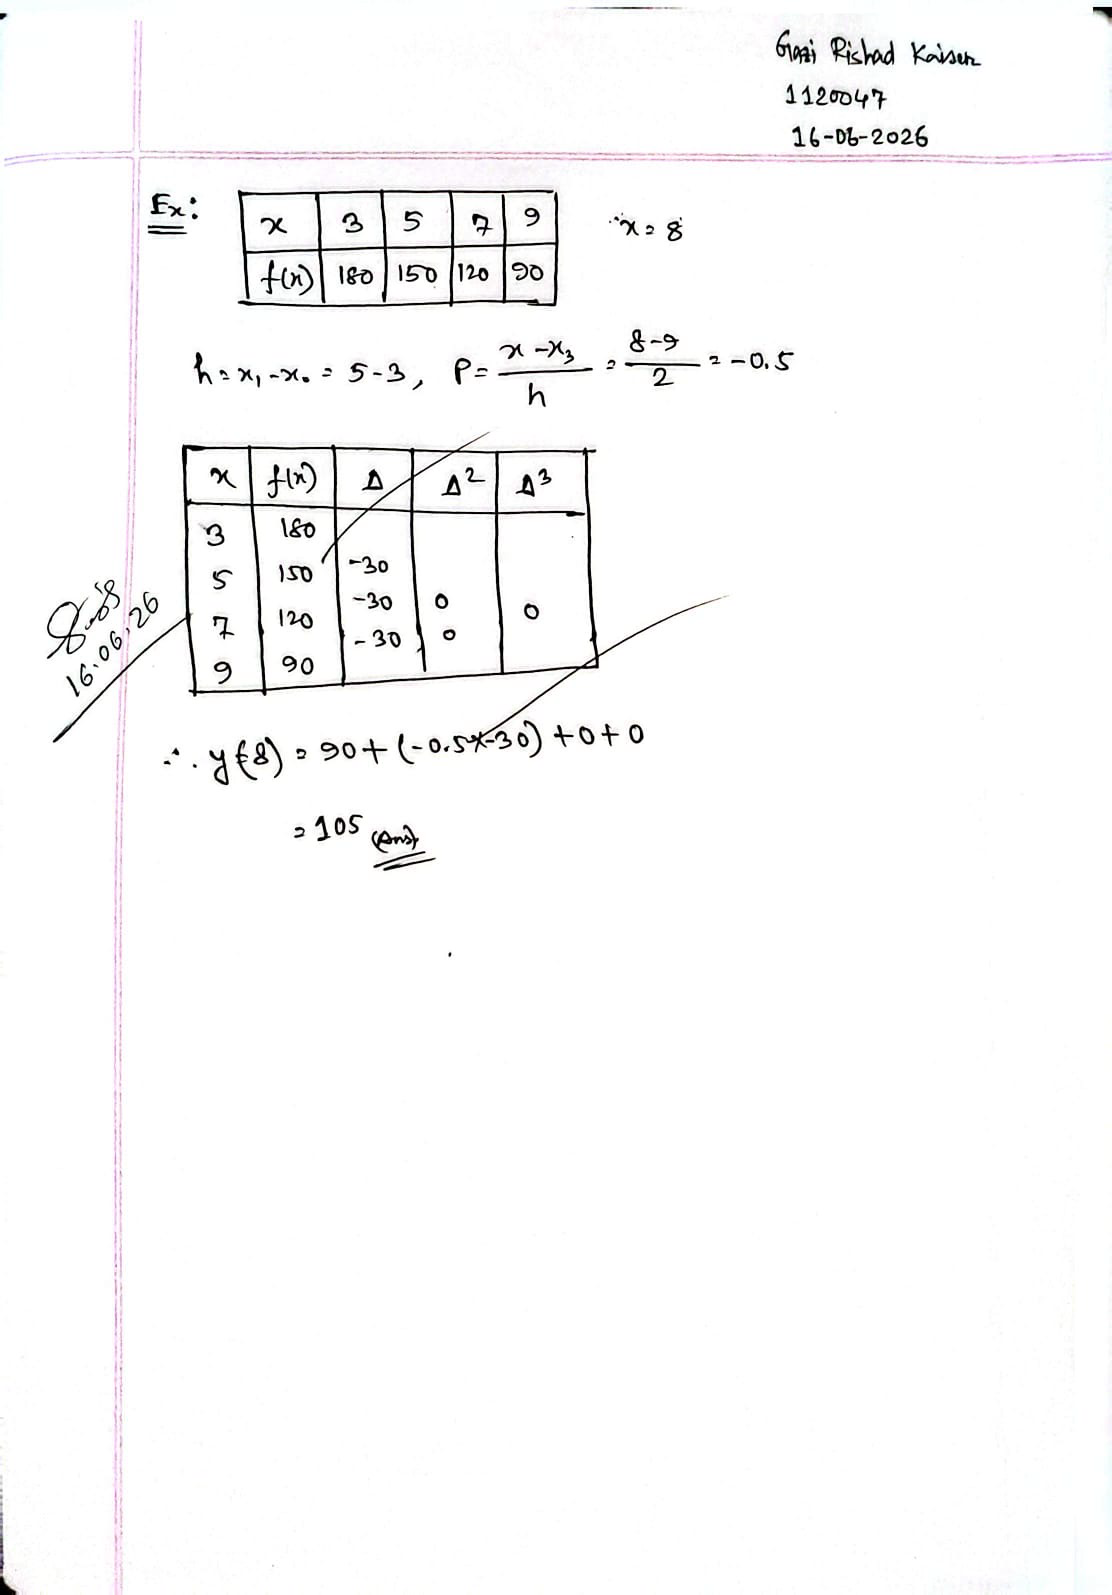 Gazi Rishad Kaiser
1120047
16-06-2026
Ex:
x 3 5 7 9
f(x) 180 150 120 90
∵x = 8
h = x₁-x₀ = 5-3, P = (x-x₃)/h = (8-9)/2 = -0.5
x f(x) Δ Δ² Δ³
3 180
5 150 -30
7 120 -30 0 0
9 90 -30 0
16.06.26
∴ y(8) = 90+(-0.5×-30)+0+0
= 105 (Ans)